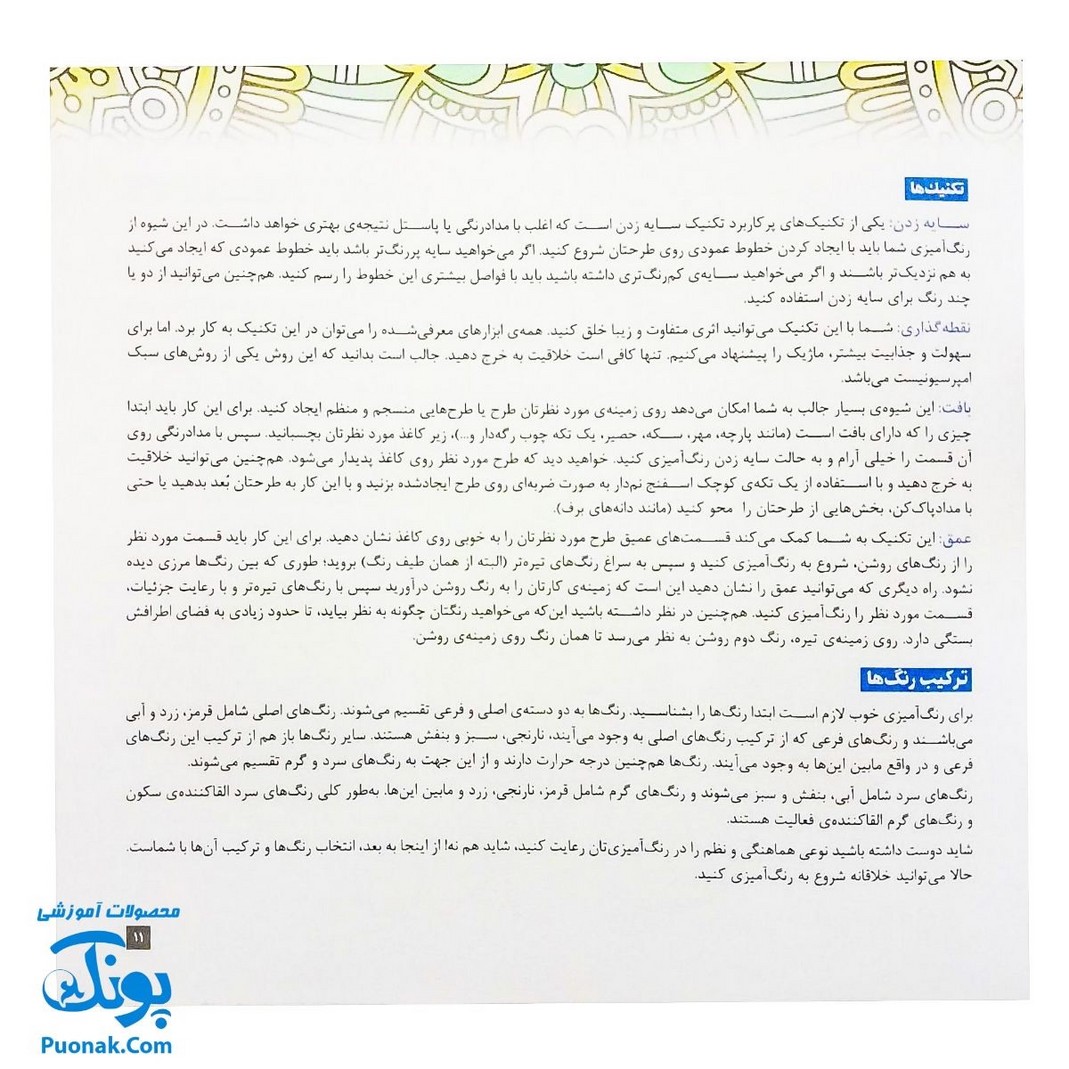 تکنیک‌ها
سایه زدن: یکی از تکنیک‌های پرکاربرد تکنیک سایه زدن است که اغلب با مدادرنگی یا پاستل نتیجه‌ی بهتری خواهد داشت. در این شیوه از
رنگ‌آمیزی شما باید با ایجاد کردن خطوط عمودی روی طرحتان شروع کنید. اگر می‌خواهید سایه پررنگ‌تر باشد باید خطوط عمودی که ایجاد می‌کنید
به هم نزدیک‌تر باشند و اگر می‌خواهید سایه‌ی کم‌رنگ‌تری داشته باشید باید با فواصل بیشتری این خطوط را رسم کنید. هم‌چنین می‌توانید از دو یا
چند رنگ برای سایه زدن استفاده کنید.
نقطه‌گذاری: شما با این تکنیک می‌توانید اثری متفاوت و زیبا خلق کنید. همه‌ی ابزارهای معرفی‌شده را می‌توان در این تکنیک به کار برد. اما برای
سهولت و جذابیت بیشتر، ماژیک را پیشنهاد می‌کنیم. تنها کافی است خلاقیت به خرج دهید. جالب است بدانید که این روش یکی از روش‌های سبک
امپرسیونیست می‌باشد.
بافت: این شیوه‌ی بسیار جالب به شما امکان می‌دهد روی زمینه‌ی مورد نظرتان طرح یا طرح‌هایی منسجم و منظم ایجاد کنید. برای این کار باید ابتدا
چیزی را که دارای بافت است (مانند پارچه، مهر، سکه، حصیر، یک تکه چوب رگه‌دار و...)، زیر کاغذ مورد نظرتان بچسبانید. سپس با مدادرنگی روی
آن قسمت را خیلی آرام و به حالت سایه زدن رنگ‌آمیزی کنید. خواهید دید که طرح مورد نظر روی کاغذ پدیدار می‌شود. هم‌چنین می‌توانید خلاقیت
به خرج دهید و با استفاده از یک تکه‌ی کوچک اسفنج نم‌دار به صورت ضربه‌ای روی طرح ایجادشده بزنید و با این کار به طرحتان بُعد بدهید یا حتی
با مدادپاک‌کن، بخش‌هایی از طرحتان را محو کنید (مانند دانه‌های برف).
عمق: این تکنیک به شما کمک می‌کند قسمت‌های عمیق طرح مورد نظرتان را به خوبی روی کاغذ نشان دهید. برای این کار باید قسمت مورد نظر
را از رنگ‌های روشن، شروع به رنگ‌آمیزی کنید و سپس به سراغ رنگ‌های تیره‌تر (البته از همان طیف رنگ) بروید؛ طوری که بین رنگ‌ها مرزی دیده
نشود. راه دیگری که می‌توانید عمق را نشان دهید این است که زمینه‌ی کارتان را به رنگ روشن درآورید سپس با رنگ‌های تیره‌تر و با رعایت جزئیات،
قسمت مورد نظر را رنگ‌آمیزی کنید. هم‌چنین در نظر داشته باشید این‌که می‌خواهید رنگتان چگونه به نظر بیاید، تا حدود زیادی به فضای اطرافش
بستگی دارد. روی زمینه‌ی تیره، رنگ دوم روشن به نظر می‌رسد تا همان رنگ روی زمینه‌ی روشن.
ترکیب رنگ‌ها
برای رنگ‌آمیزی خوب لازم است ابتدا رنگ‌ها را بشناسید. رنگ‌ها به دو دسته‌ی اصلی و فرعی تقسیم می‌شوند. رنگ‌های اصلی شامل قرمز، زرد و آبی
می‌باشند و رنگ‌های فرعی که از ترکیب رنگ‌های اصلی به وجود می‌آیند، نارنجی، سبز و بنفش هستند. سایر رنگ‌ها باز هم از ترکیب این رنگ‌های
فرعی و در واقع مابین این‌ها به وجود می‌آیند. رنگ‌ها هم‌چنین درجه حرارت دارند و از این جهت به رنگ‌های سرد و گرم تقسیم می‌شوند.
رنگ‌های سرد شامل آبی، بنفش و سبز می‌شوند و رنگ‌های گرم شامل قرمز، نارنجی، زرد و مابین این‌ها. به‌طور کلی رنگ‌های سرد القاکننده‌ی سکون
و رنگ‌های گرم القاکننده‌ی فعالیت هستند.
شاید دوست داشته باشید نوعی هماهنگی و نظم را در رنگ‌آمیزی‌تان رعایت کنید، شاید هم نه! از اینجا به بعد، انتخاب رنگ‌ها و ترکیب آن‌ها با شماست.
حالا می‌توانید خلاقانه شروع به رنگ‌آمیزی کنید.
محصولات آموزشی
۱۱
پونک
Puonak.Com